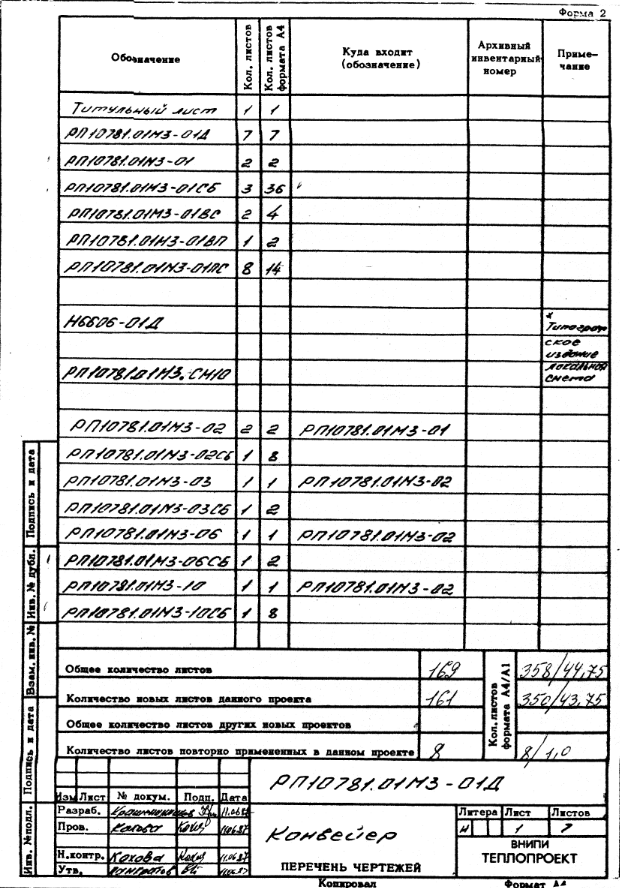 Форма 2
Обозначение Кол. листов Кол. листов формата А4 Куда входит (обозначение) Архивный инвентарный номер Приме-чание
Титульный лист 1 1
РП10781.01МЗ-01Д 7 7
РП10781.01МЗ-01 2 2
РП10781.01МЗ-01СБ 3 36
РП10781.01МЗ-01ВС 2 4
РП10781.01МЗ-01ВП 1 2
РП10781.01МЗ-01ПС 8 14
Н6606-01Д
*
Типограф
ское
издание
РП10781.01МЗ.СМ10 локальной
смета
РП10781.01МЗ-02 2 2 РП10781.01МЗ-01
РП10781.01МЗ-02СБ 1 8
РП10781.01МЗ-03 1 1 РП10781.01МЗ-02
РП10781.01МЗ-03СБ 1 2
РП10781.01МЗ-06 1 1 РП10781.01МЗ-02
РП10781.01МЗ-06СБ 1 2
РП10781.01МЗ-10 1 1 РП10781.01МЗ-02
РП10781.01МЗ-10СБ 1 8
Общее количество листов 169 358/44,75
Количество новых листов данного проекта 161 350/43,75
Общее количество листов других новых проектов
Количество листов повторно примененных в данном проекте 8 8/1,0
Кол. листов формата А4/А1
РП10781.01МЗ-01Д
Изм Лист № докум. Подп. Дата
Разраб. 11.06.87
Пров. 11.06.87
Н.контр. Кахова 11.06.87
Утв. 11.06.87
Конвейер
ПЕРЕЧЕНЬ ЧЕРТЕЖЕЙ
Литера Лист Листов
И 1 7
ВНИПИ
ТЕПЛОПРОЕКТ
Копировал Формат А4
Инв. №подл. Подпись и дата Взам. инв. № Инв. № дубл. Подпись и дата